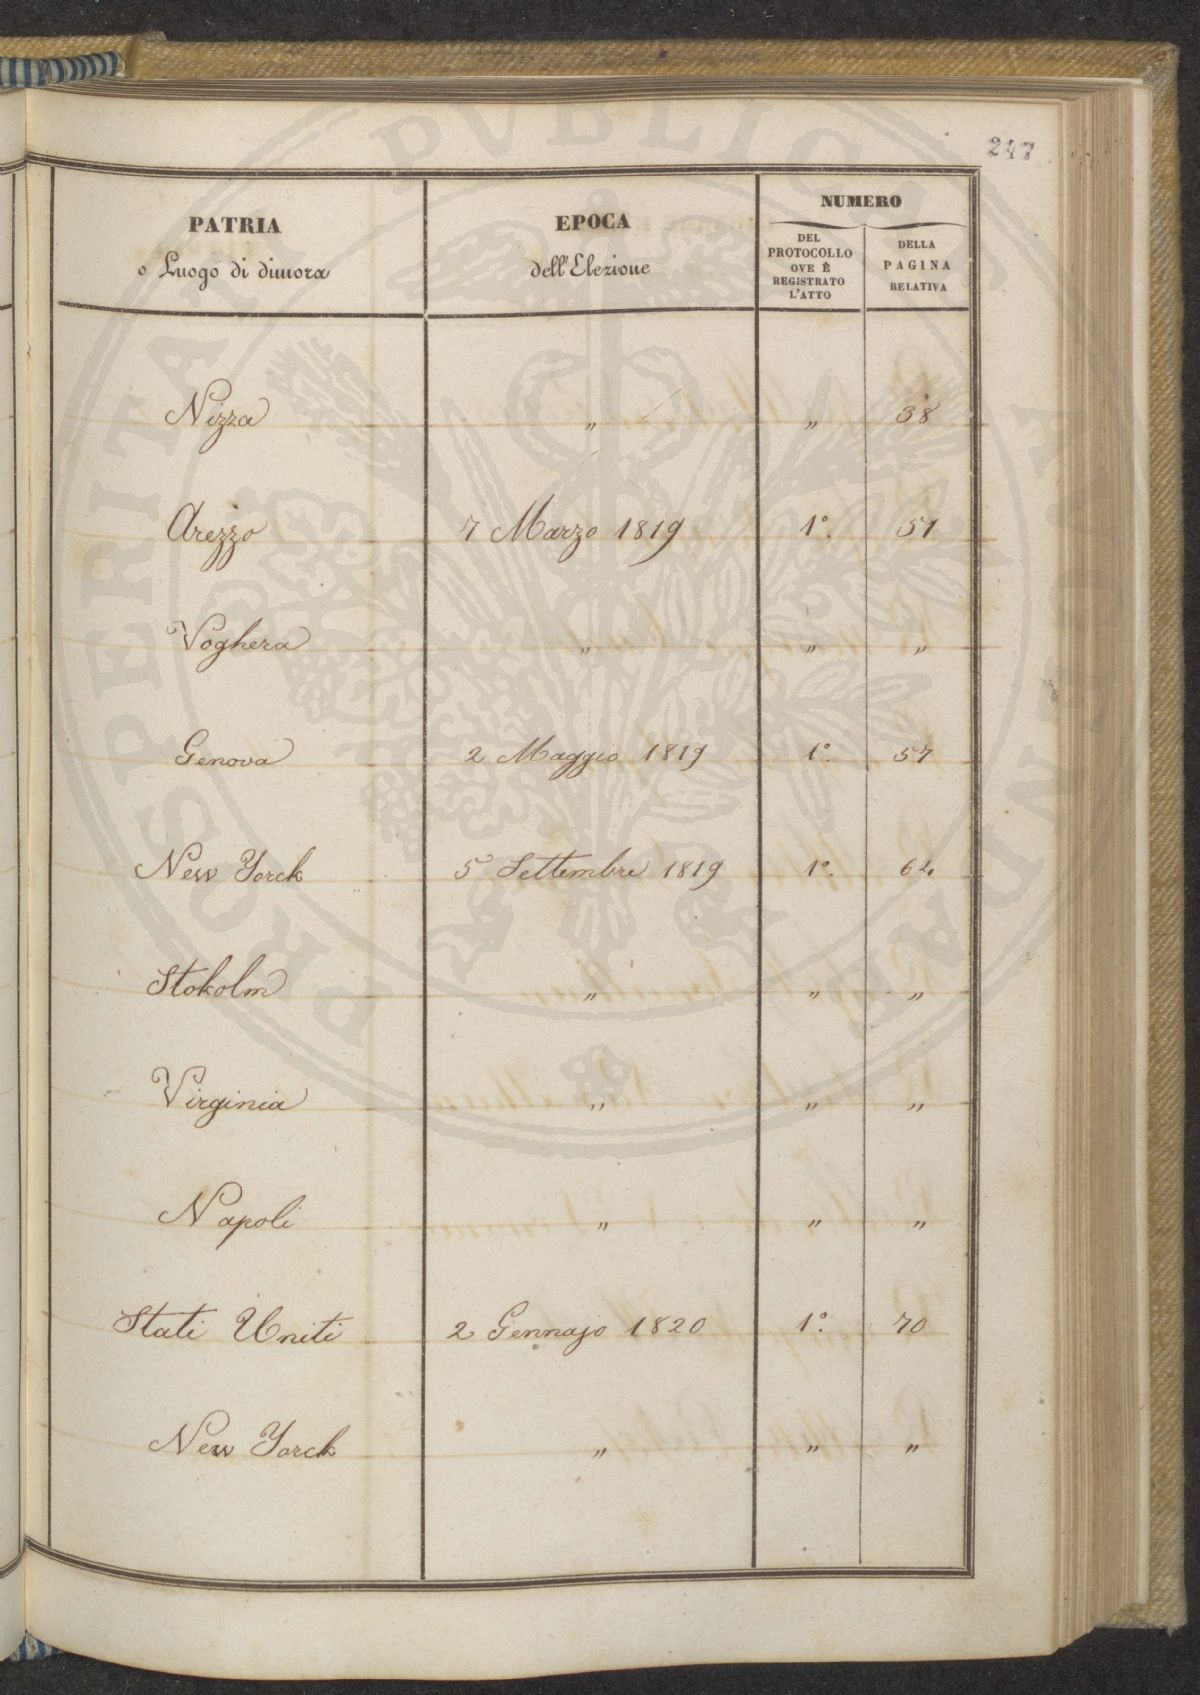 247
PATRIA
o Luogo di dimora
EPOCA
dell'Elezione
NUMERO
DEL
PROTOCOLLO
OVE È
REGISTRATO
L'ATTO
DELLA
PAGINA
RELATIVA
Nizza " " 38
Arezzo 7 Marzo 1819 1°. 51
Voghera " " "
Genova 2 Maggio 1819 1°. 57
New Yorck 5 Settembre 1819 1°. 64
Stokolm " " "
Virginia " " "
Napoli " " "
Stati Uniti 2 Gennajo 1820 1°. 70
New Yorck " " "
PROSPERITATI PVBLICAE AVGENDAE